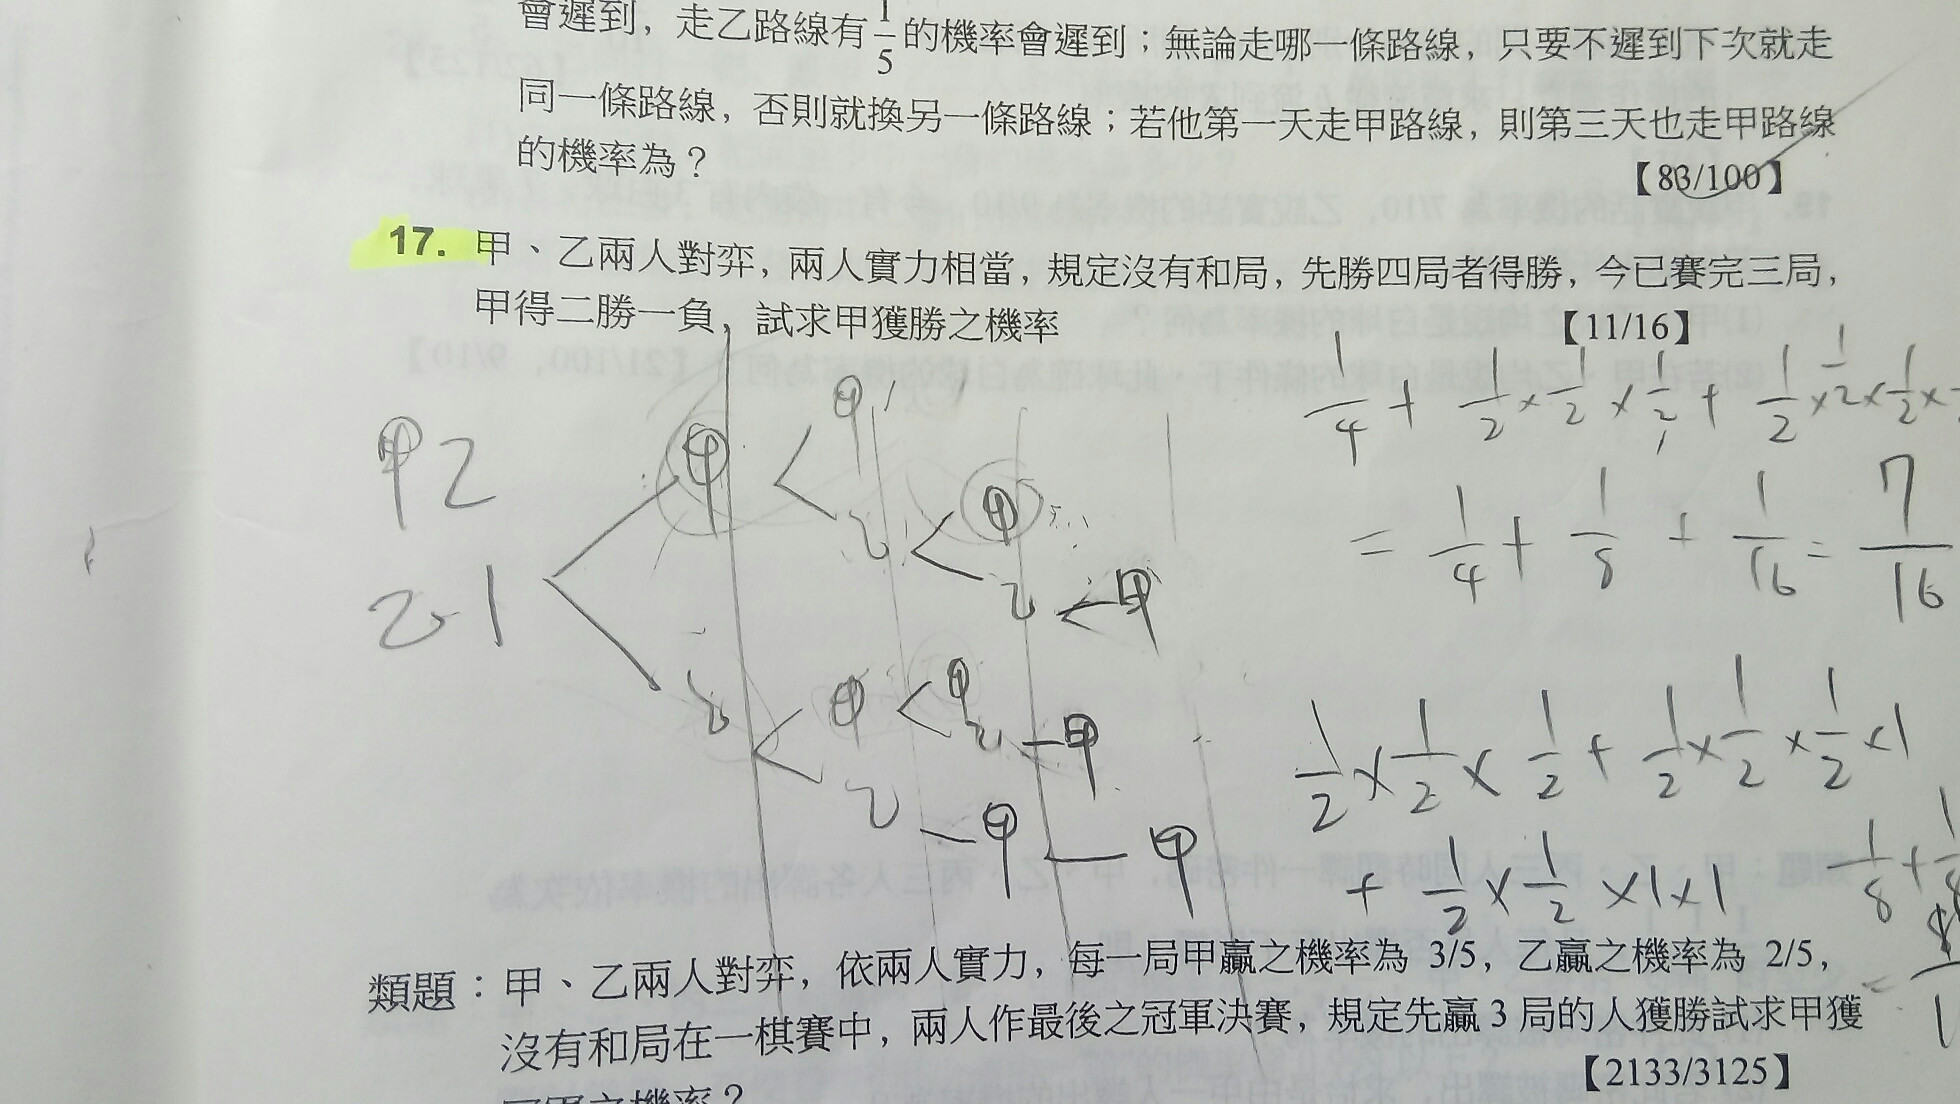 會遲到，走乙路線有1/5的機率會遲到；無論走哪一條路線，只要不遲到下次就走
同一條路線，否則就換另一條路線；若他第一天走甲路線，則第三天也走甲路線
的機率為？
【83/100】
17. 甲、乙兩人對弈，兩人實力相當，規定沒有和局，先勝四局者得勝，今已賽完三局，
甲得二勝一負，試求甲獲勝之機率
【11/16】
甲2
乙1
甲 甲
乙 甲
乙 甲
乙 甲 甲
乙 甲
乙 甲 甲
1/4 + 1/2 × 1/2 × 1/2 + 1/2 × 1/2 × 1/2 ×
= 1/4 + 1/8 + 1/16 = 7/16
1/2 × 1/2 × 1/2 + 1/2 × 1/2 × 1/2 × 1
+ 1/2 × 1/2 × 1 × 1
類題：甲、乙兩人對弈，依兩人實力，每一局甲贏之機率為 3/5，乙贏之機率為 2/5，
沒有和局在一棋賽中，兩人作最後之冠軍決賽，規定先贏 3 局的人獲勝試求甲獲
之機率？
【2133/3125】